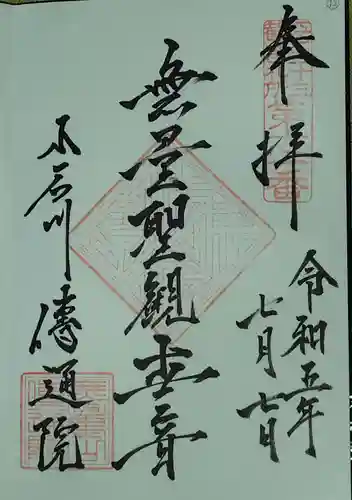 ⑫
奉拝
令和五年
七月七日
無量聖觀世音
小石川
傳通院